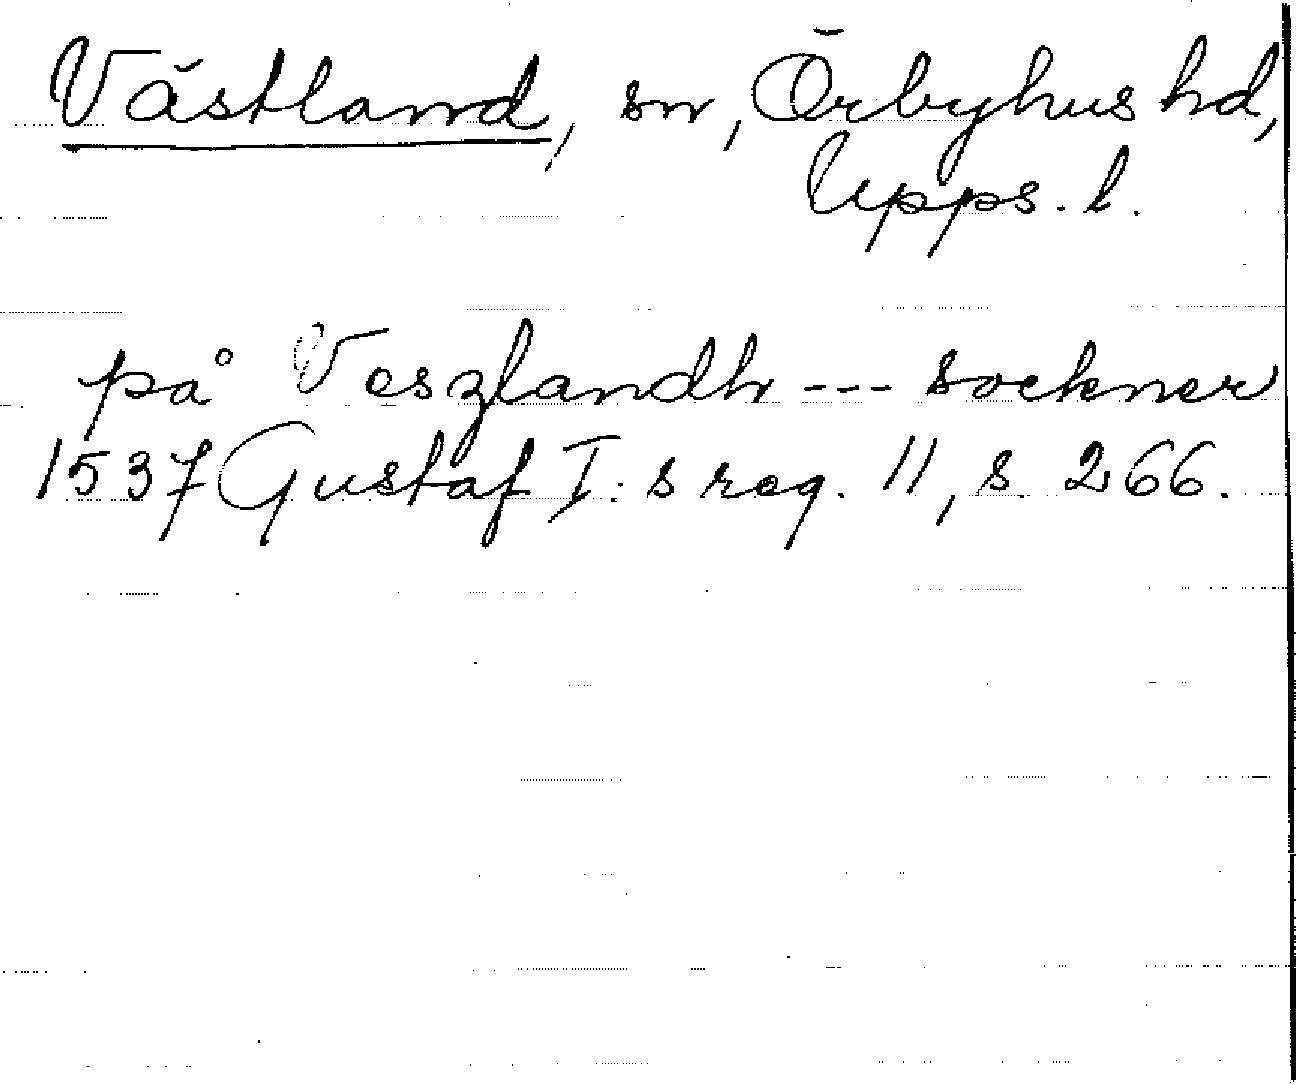 Västland, sn, Örbyhus hd,
Upps. l.
på Veszlandh --- sockner
1537 Gustaf I:s reg. 11, s. 266.